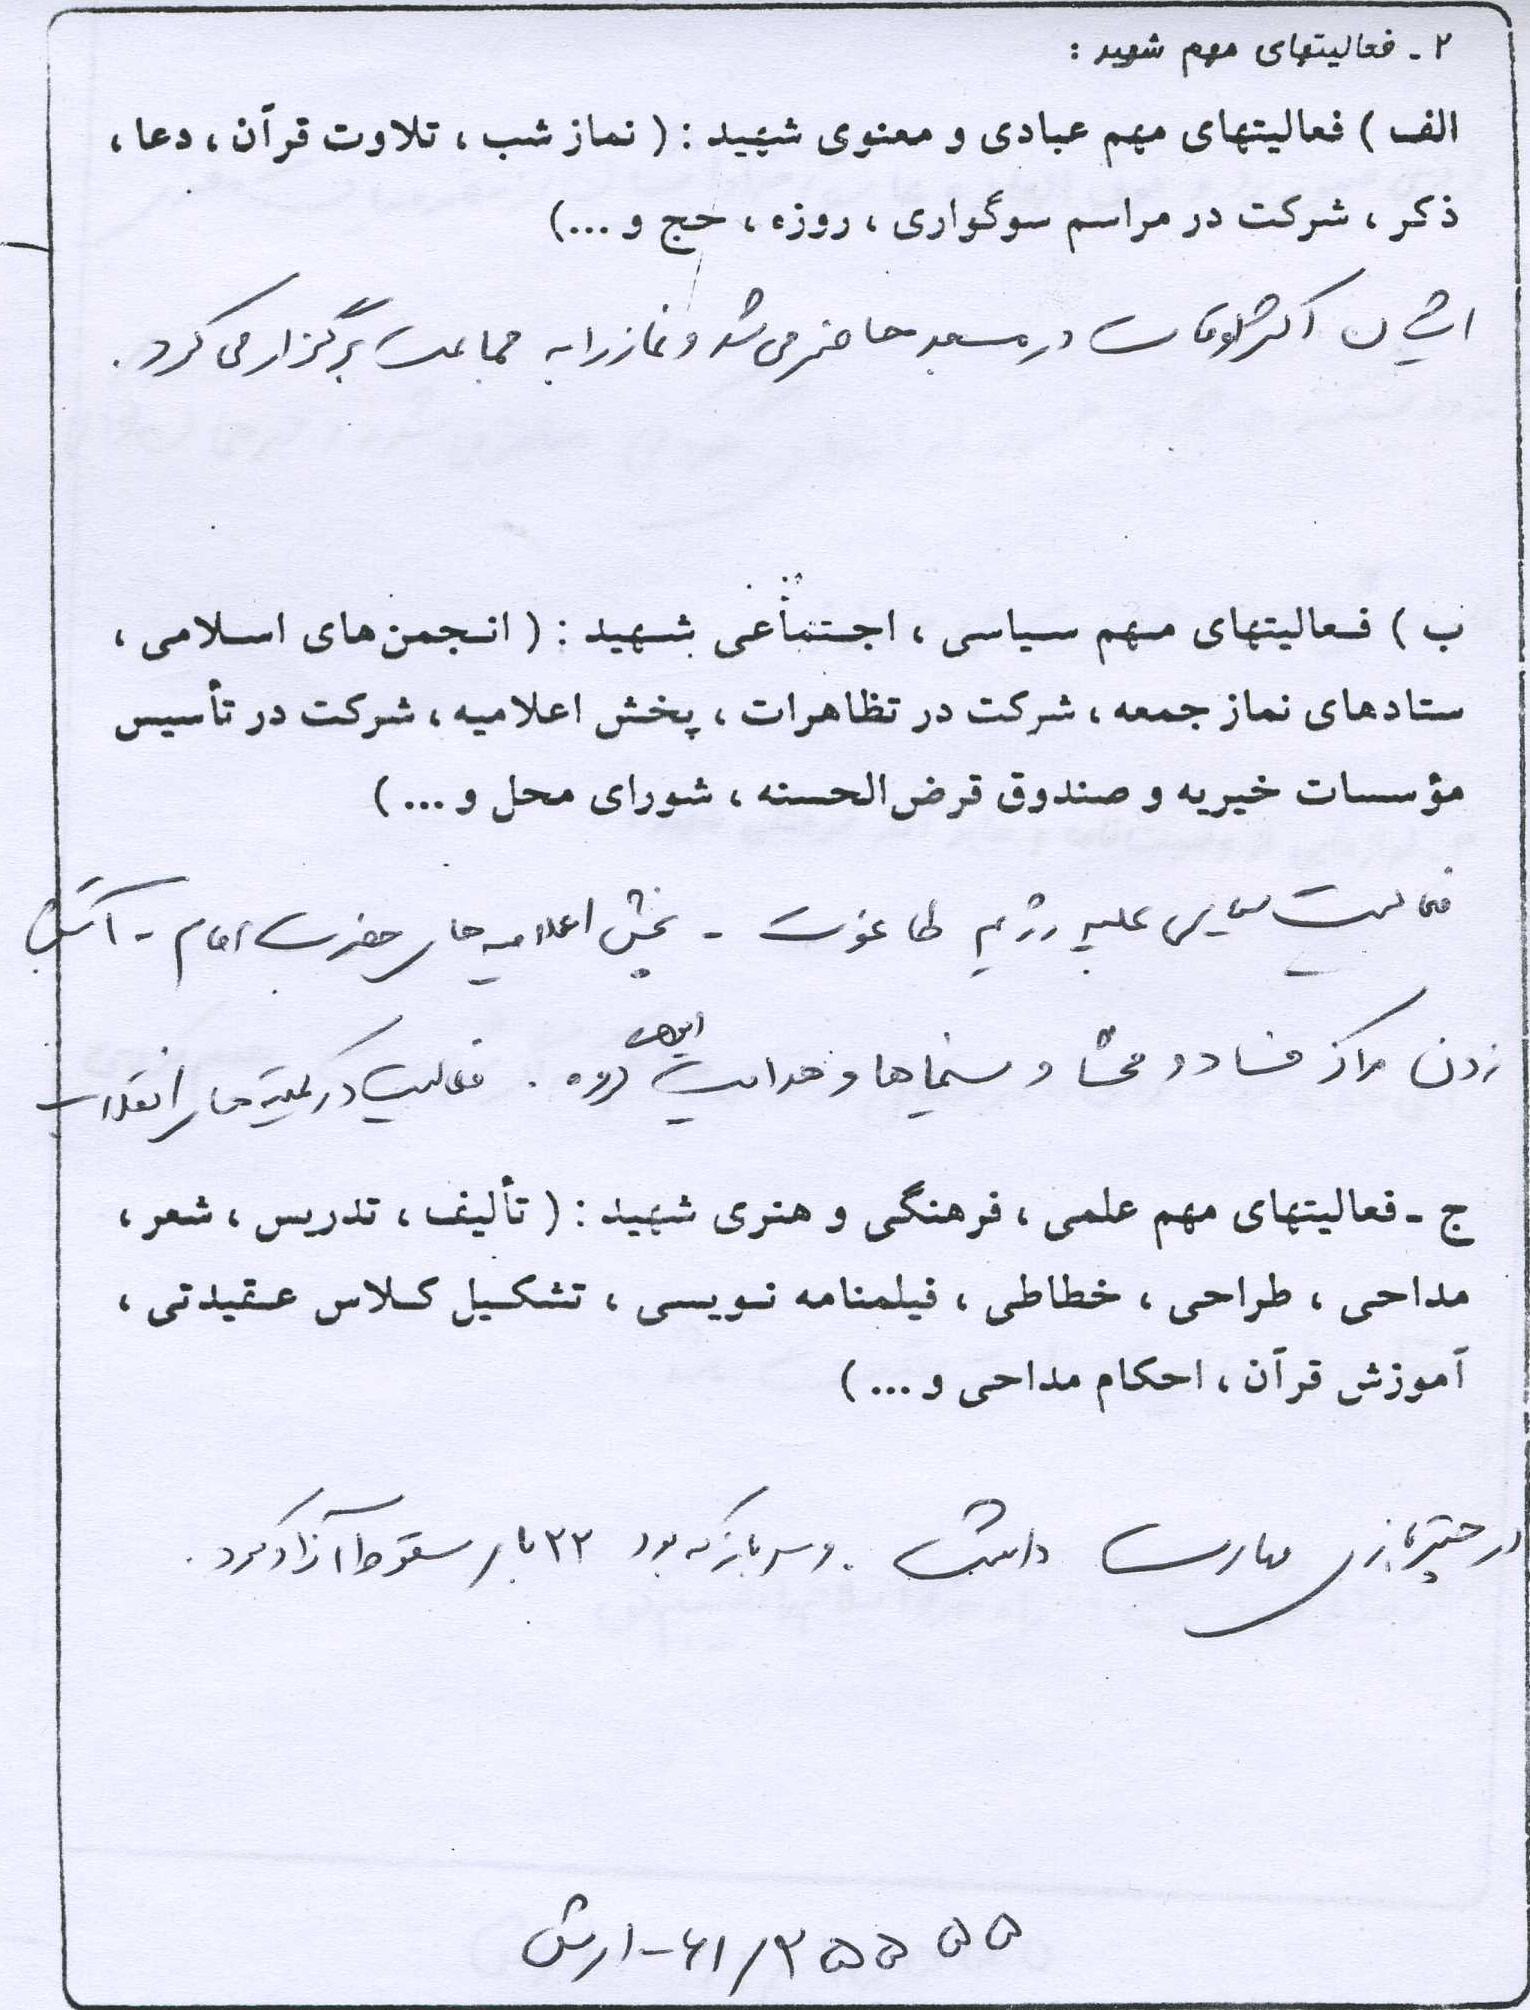 ۲ - فعالیتهای مهم شهید :
الف ) فعالیتهای مهم عبادی و معنوی شهید : ( نماز شب ، تلاوت قرآن ، دعا ،
ذکر ، شرکت در مراسم سوگواری ، روزه ، حج و ...)
ایشان اکثر اوقات در مسجد حاضر می شد و نماز را به جماعت برگزار می کرد .
ب ) فعالیتهای مهم سیاسی ، اجتماعی شهید : ( انجمن های اسلامی ،
ستادهای نماز جمعه ، شرکت در تظاهرات ، پخش اعلامیه ، شرکت در تأسیس
مؤسسات خیریه و صندوق قرض الحسنه ، شورای محل و ... )
فعالیت سیاسی علیه رژیم طاغوت - پخش اعلامیه های حضرت امام - آتش
زدن مراکز فساد و فحشا و سینماها و هدایت گروه . فعالیت در کمیته های انقلاب
ج - فعالیتهای مهم علمی ، فرهنگی و هنری شهید : ( تألیف ، تدریس ، شعر ،
مداحی ، طراحی ، خطاطی ، فیلمنامه نویسی ، تشکیل کلاس عقیدتی ،
آموزش قرآن ، احکام مداحی و ... )
در چتربازی مهارت داشت . و سرباز که بود ۲۲ بار سقوط آزاد کرد .
۶۱/۲۵۵۵۵ - ارتش